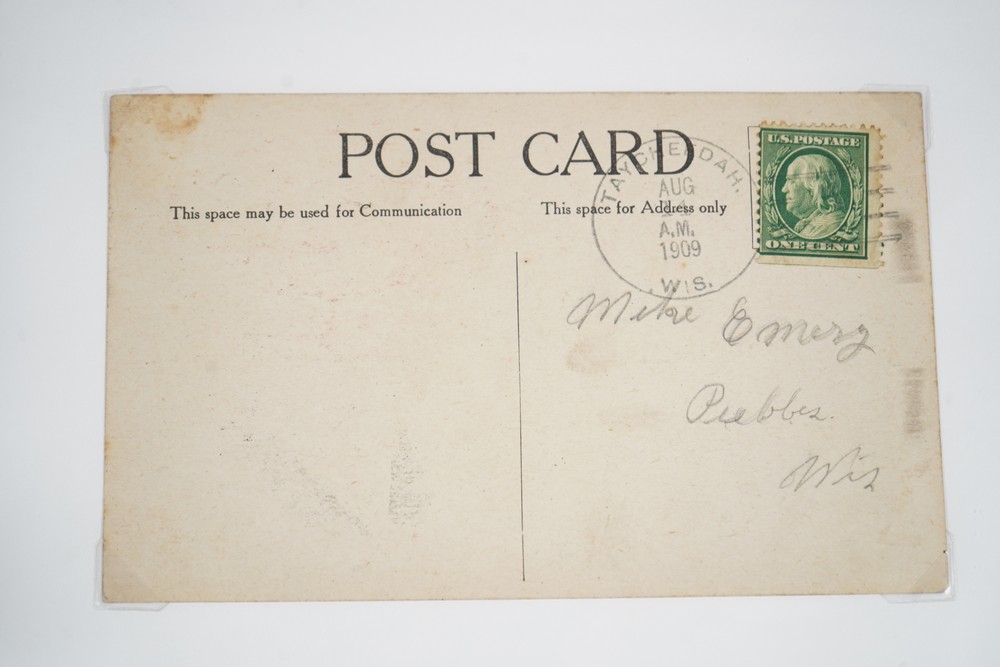 POST CARD
This space may be used for Communication
This space for Address only
TAYCHEEDAH.
AUG
A.M.
1909
WIS.
U.S. POSTAGE
ONE CENT
Mike Emery
Peebbes.
Wis